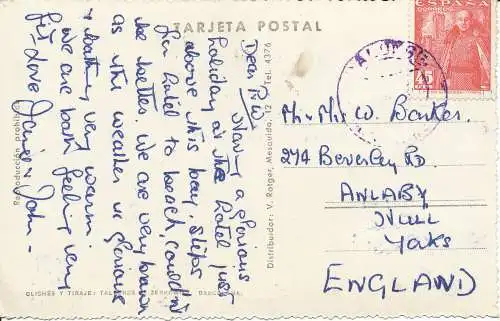 TARJETA POSTAL
Dear P.W.
Having a glorious
holiday at the hotel just
above this bay, steps
from hotel to beach, couldn't
be better. We are very brown
as the weather is glorious
& bathing very warm.
We are both feeling very
fit. Love Janice & John -
Reproducción prohibida
Distribuidor: V. Rotger, Mesquida, 12 Tel. 4376
CLISHÉS Y TIRAJE: TALLERES ZERKOWITZ BARCELONA
ESPAÑA
CORREOS
Mr & Mrs W. Barker.
274 Beverley RD.
ANLABY
HULL
Yorks
ENGLAND